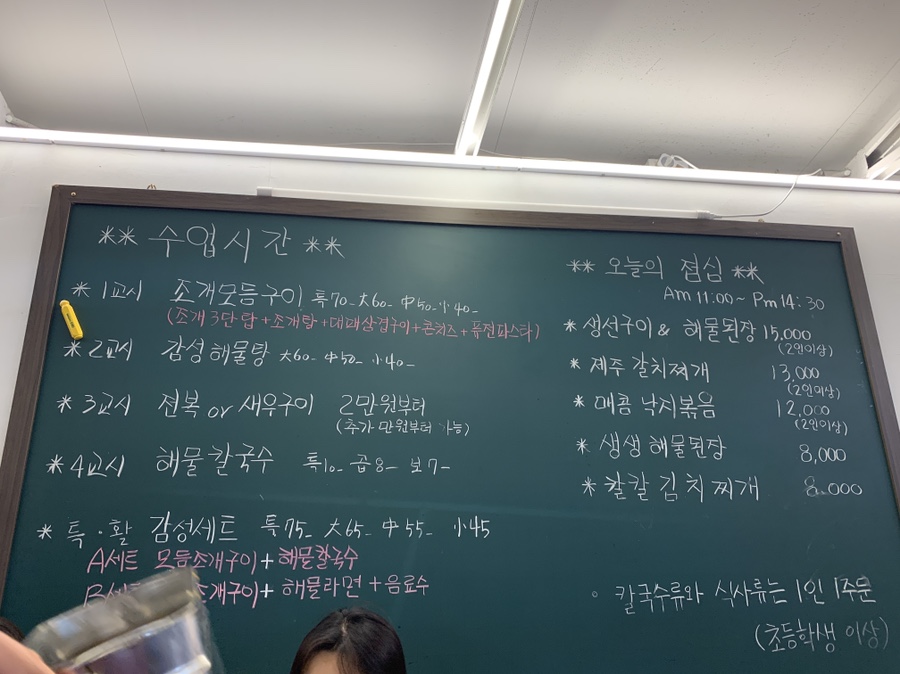 ** 수업시간 **
* 1교시 조개모듬구이 특70- 大60- 中50- 小40-
(조개3단탑+조개탕+대패삼겹구이+콘치즈+퓨전파스타)
* 2교시 감성해물탕 大60- 中50- 小40-
* 3교시 전복 or 새우구이 2만원부터
(추가 만원부터 가능)
* 4교시 해물칼국수 특10- 곱8- 보7-
* 특·활 감성세트 特75- 大65- 中55- 小45
A세트 모듬조개구이+해물칼국수
B세트 조개구이+해물라면+음료수
** 오늘의 점심 **
Am 11:00~ Pm 14:30
* 생선구이 & 해물된장 15,000
(2인이상)
* 제주 갈치찌개 13,000
(2인이상)
* 매콤 낙지볶음 12,000
(2인이상)
* 생생해물된장 8,000
* 칼칼김치찌개 8.000
◦ 칼국수류와 식사류는 1인 1주문
(초등학생 이상)